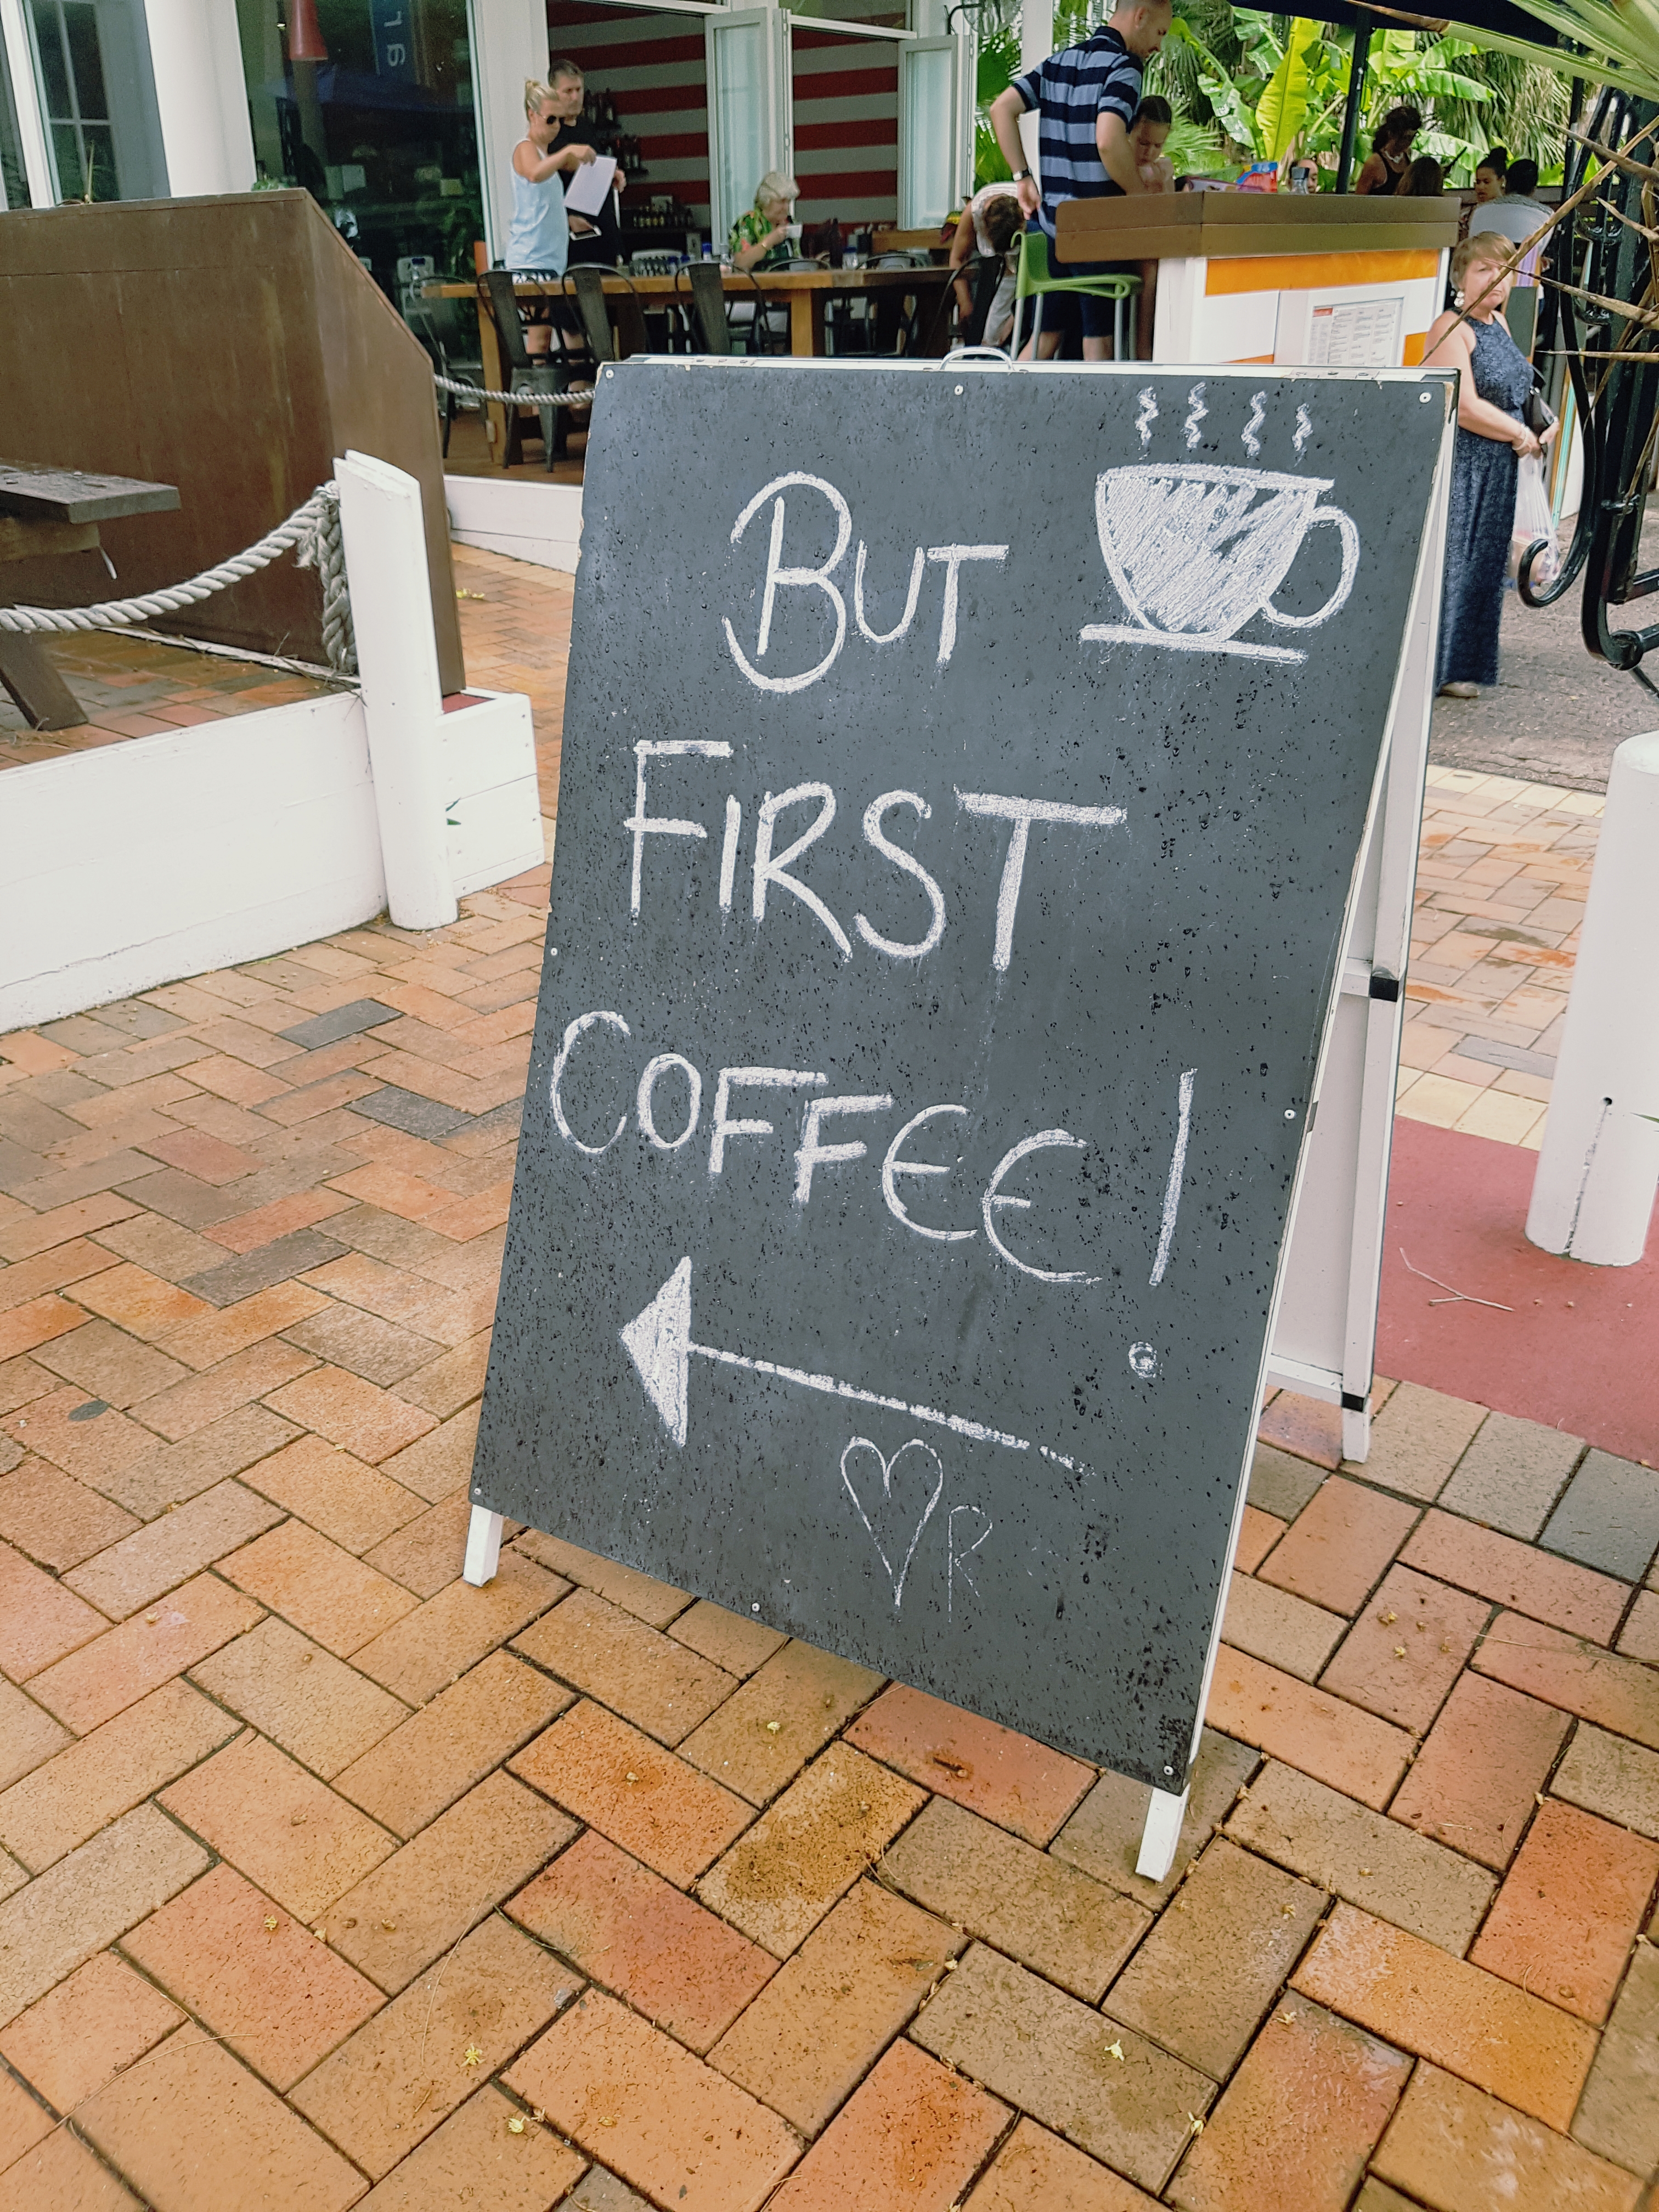 BUT
FIRST
COFFEE!
R